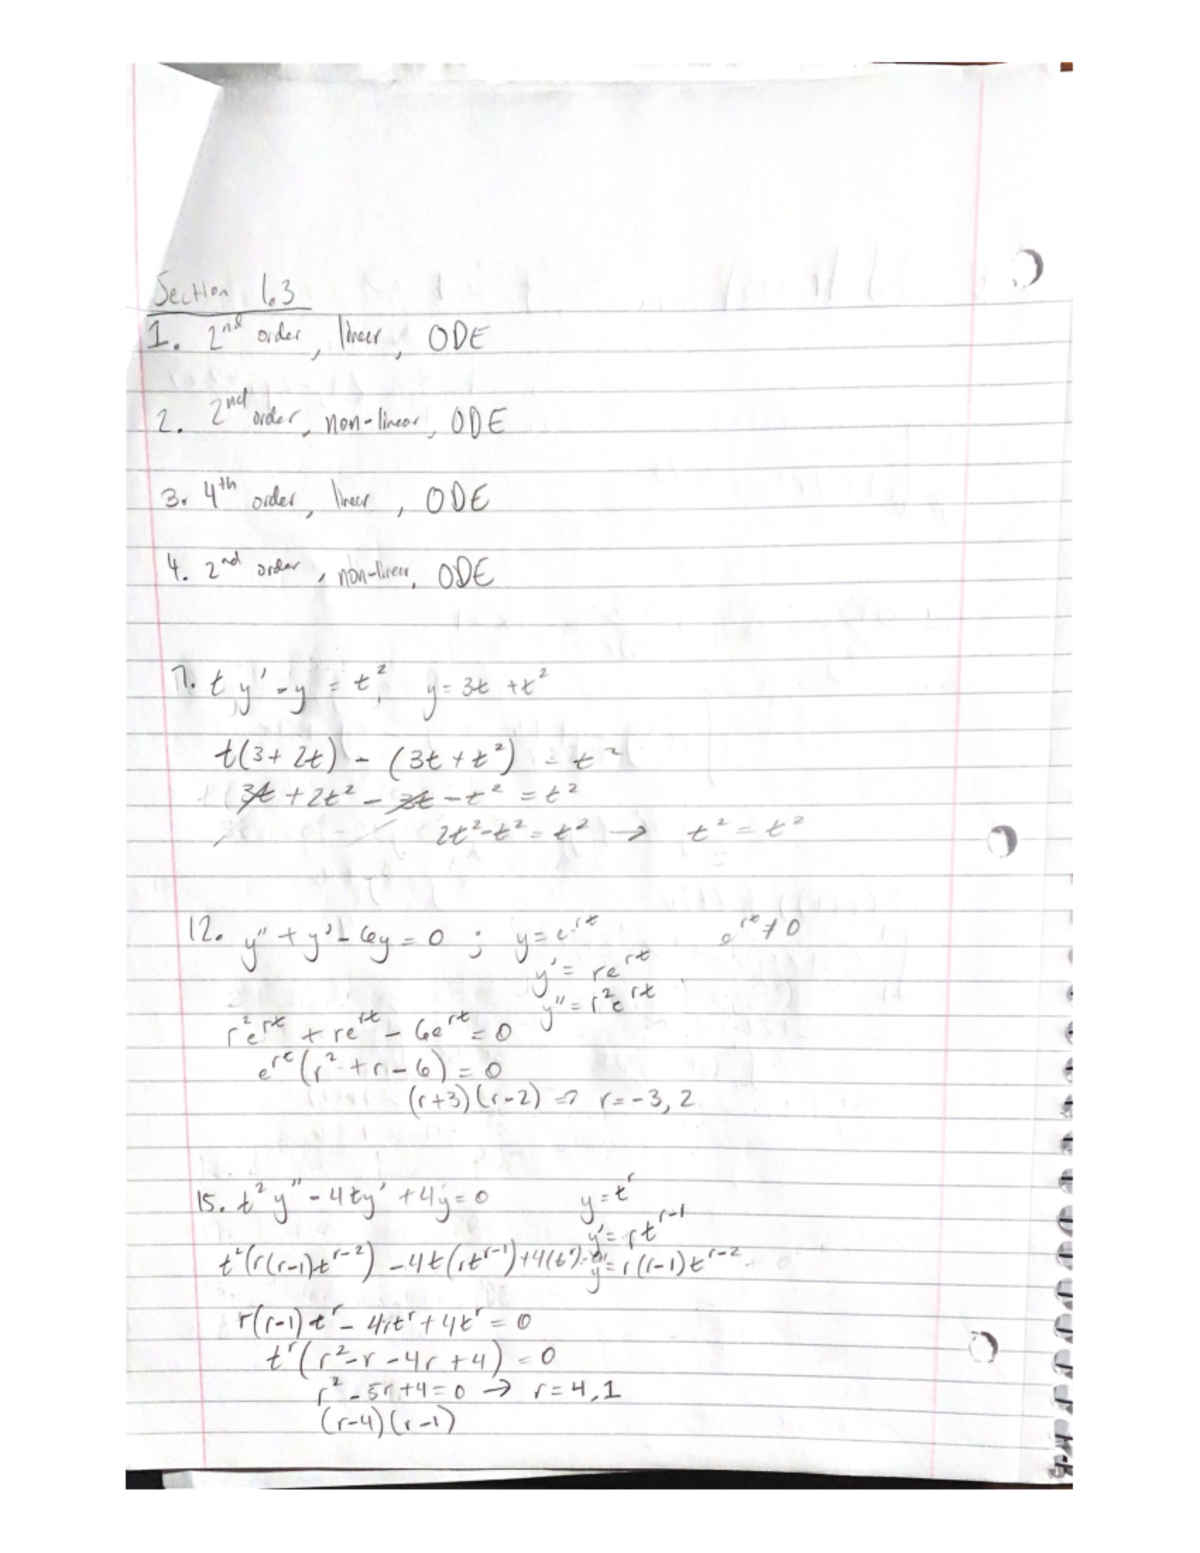 Section 1.3
1. 2nd order, linear, ODE
2. 2nd order, non-linear, ODE
3. 4th order, linear, ODE
4. 2nd order, non-linear, ODE
7. ty' - y = t², y = 3t + t²
t(3 + 2t) - (3t + t²) = t²
3t + 2t² - 3t - t² = t²
2t² - t² = t² → t² = t²
12. y'' + y' - 6y = 0 ; y = e^rt e^rt ≠ 0
y' = re^rt
y'' = r²e^rt
r²e^rt + re^rt - 6e^rt = 0
e^rt(r² + r - 6) = 0
(r+3)(r-2) => r = -3, 2
15. t²y'' - 4ty' + 4y = 0 y = t^r
y' = rt^r-1
t²(r(r-1)t^r-2) - 4t(rt^r-1) + 4(t^r) = 0 y'' = r(r-1)t^r-2
r(r-1)t^r - 4rt^r + 4t^r = 0
t^r(r² - r - 4r + 4) = 0
r² - 5r + 4 = 0 → r = 4, 1
(r-4)(r-1)